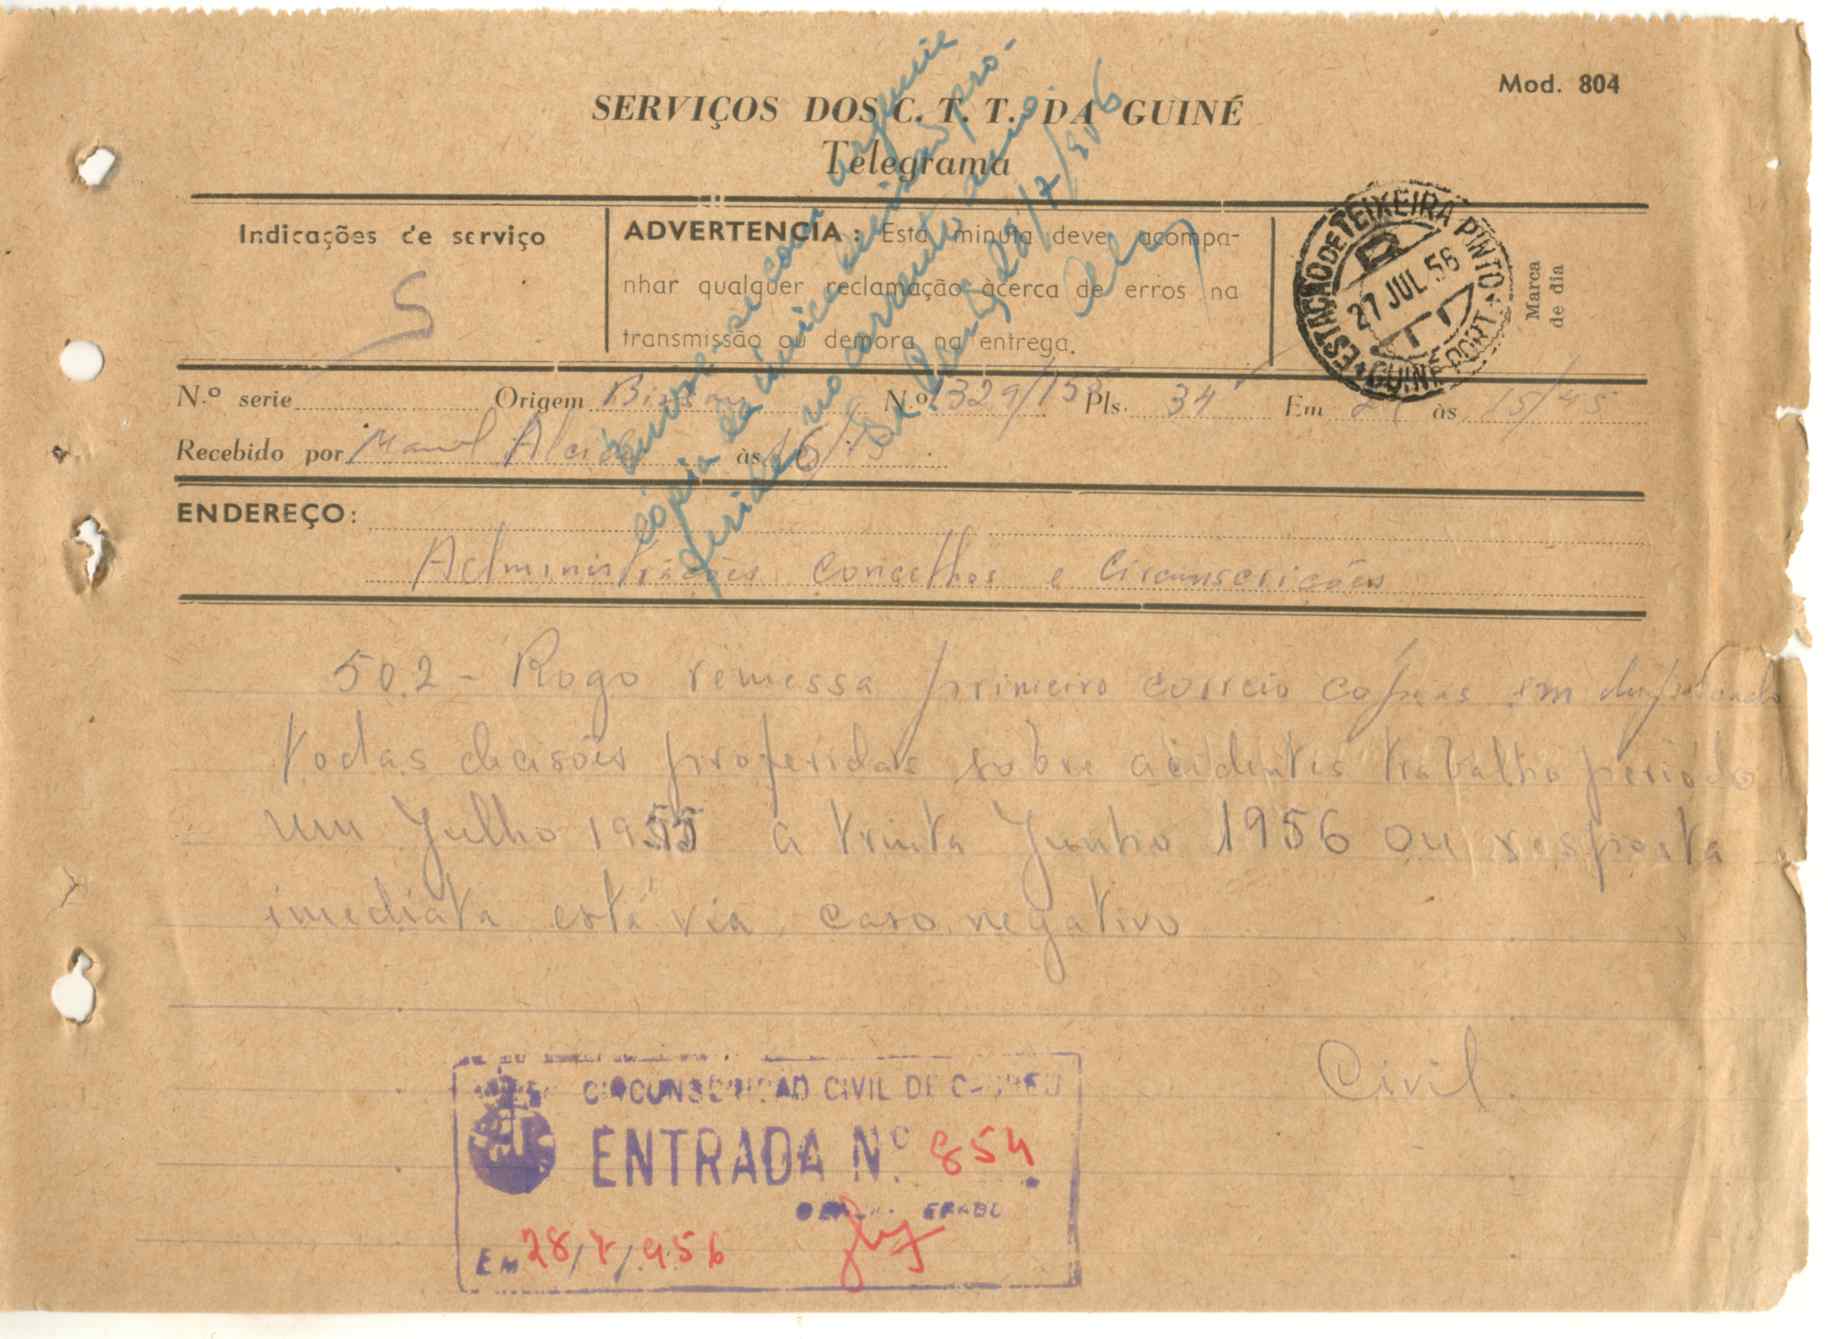 Mod. 804
SERVIÇOS DOS C. T. T. DA GUINÉ
Telegrama
Indicações de serviço
S
ADVERTENCIA : Esta minuta deve acompa-
nhar qualquer reclamação àcerca de erros na
transmissão ou demora na entrega.
ESTAÇÃO DE TEIXEIRA PINTO
27 JUL 56
GUINÉ PORT.
Marca
de dia
N.º serie Origem Bissau N.º 1329/158 Pls. 34 Em às 15/45
Recebido por Manuel às 16/15
ENDEREÇO:
Administrações Concelhos e Circunscrições
502 - Rogo remessa primeiro correio copias em duplicado
todas decisões proferidas sobre acidentes trabalho periodo
um Julho 1955 a trinta Junho 1956 ou resposta
imediata está via caso negativo
Civil
Envie-se com urgencia
cópia da única decisão pro-
ferida no corrente ano.
28/7/956
CIRCUNSCRIÇÃO CIVIL DE CACHEU
ENTRADA Nº. 854
EM 28/7/956